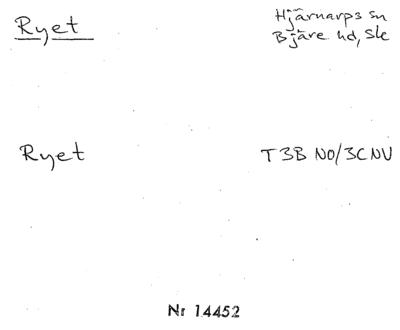 Ryet
Hjärnarps sn
Bjäre hd, Skc
Ryet
T3B NO/3CNV
Nr 14452